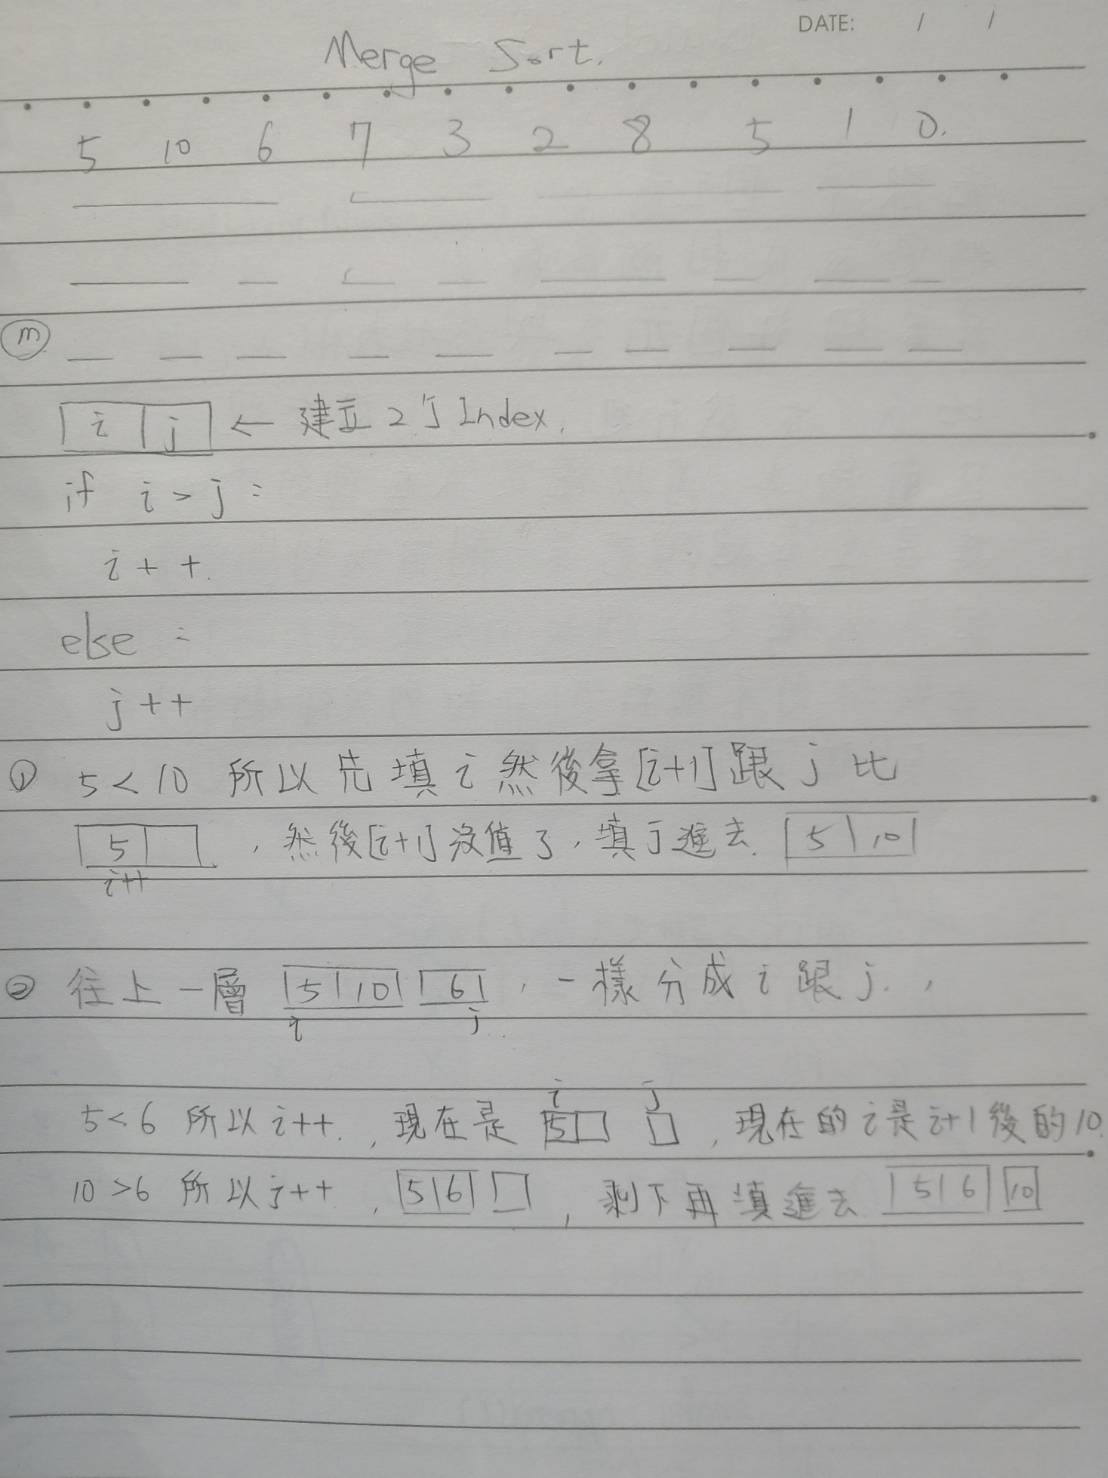 DATE: / /
Merge Sort.
5 10 6 7 3 2 8 5 1 0.
m
i j ← 建立2個Index.
if i > j :
i++.
else :
j++
① 5<10 所以先填i然後拿[i+1]跟j比
5 , 然後[i+1]沒值了,填j進去. 5 10
i++
② 往上一層 5 10 6 , 一樣分成i跟j. ,
i j
i j
5<6 所以i++. , 現在是 5 , 現在的i是i+1後的10.
10>6 所以j++ , 5 6 , 剩下再填進去 5 6 10